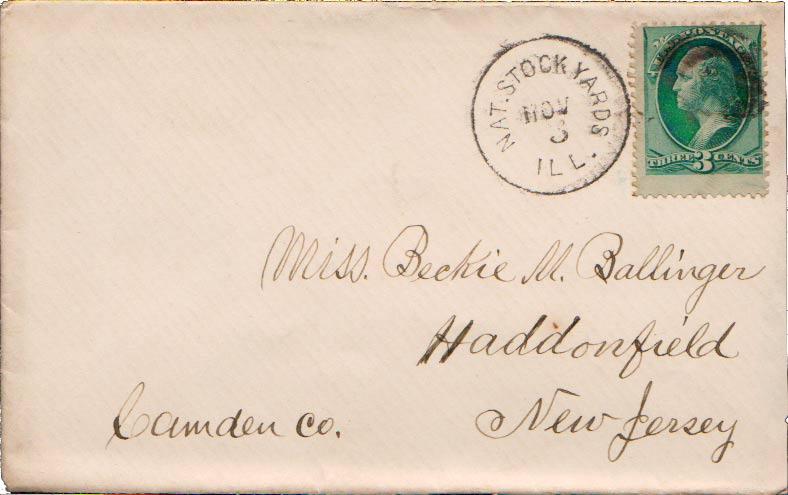 NAT. STOCK YARDS
NOV
3
ILL.
U.S. POSTAGE
THREE 3 CENTS
Miss. Beckie M. Ballinger
Haddonfield
Camden Co. New Jersey